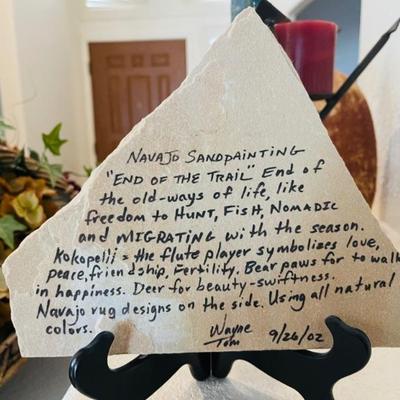 NAVAJO SANDPAINTING
"END OF THE TRAIL" End of
the old-ways of life, like
freedom to HUNT, FISH, NOMADIC
and MIGRATING with the season.
Kokopelli = the flute player symbolizes love,
peace, friendship, Fertility. Bear paws for to walk
in happiness. Deer for beauty-swiftness.
Navajo rug designs on the side. Using all natural
colors.
Wayne
Tom
9/26/02